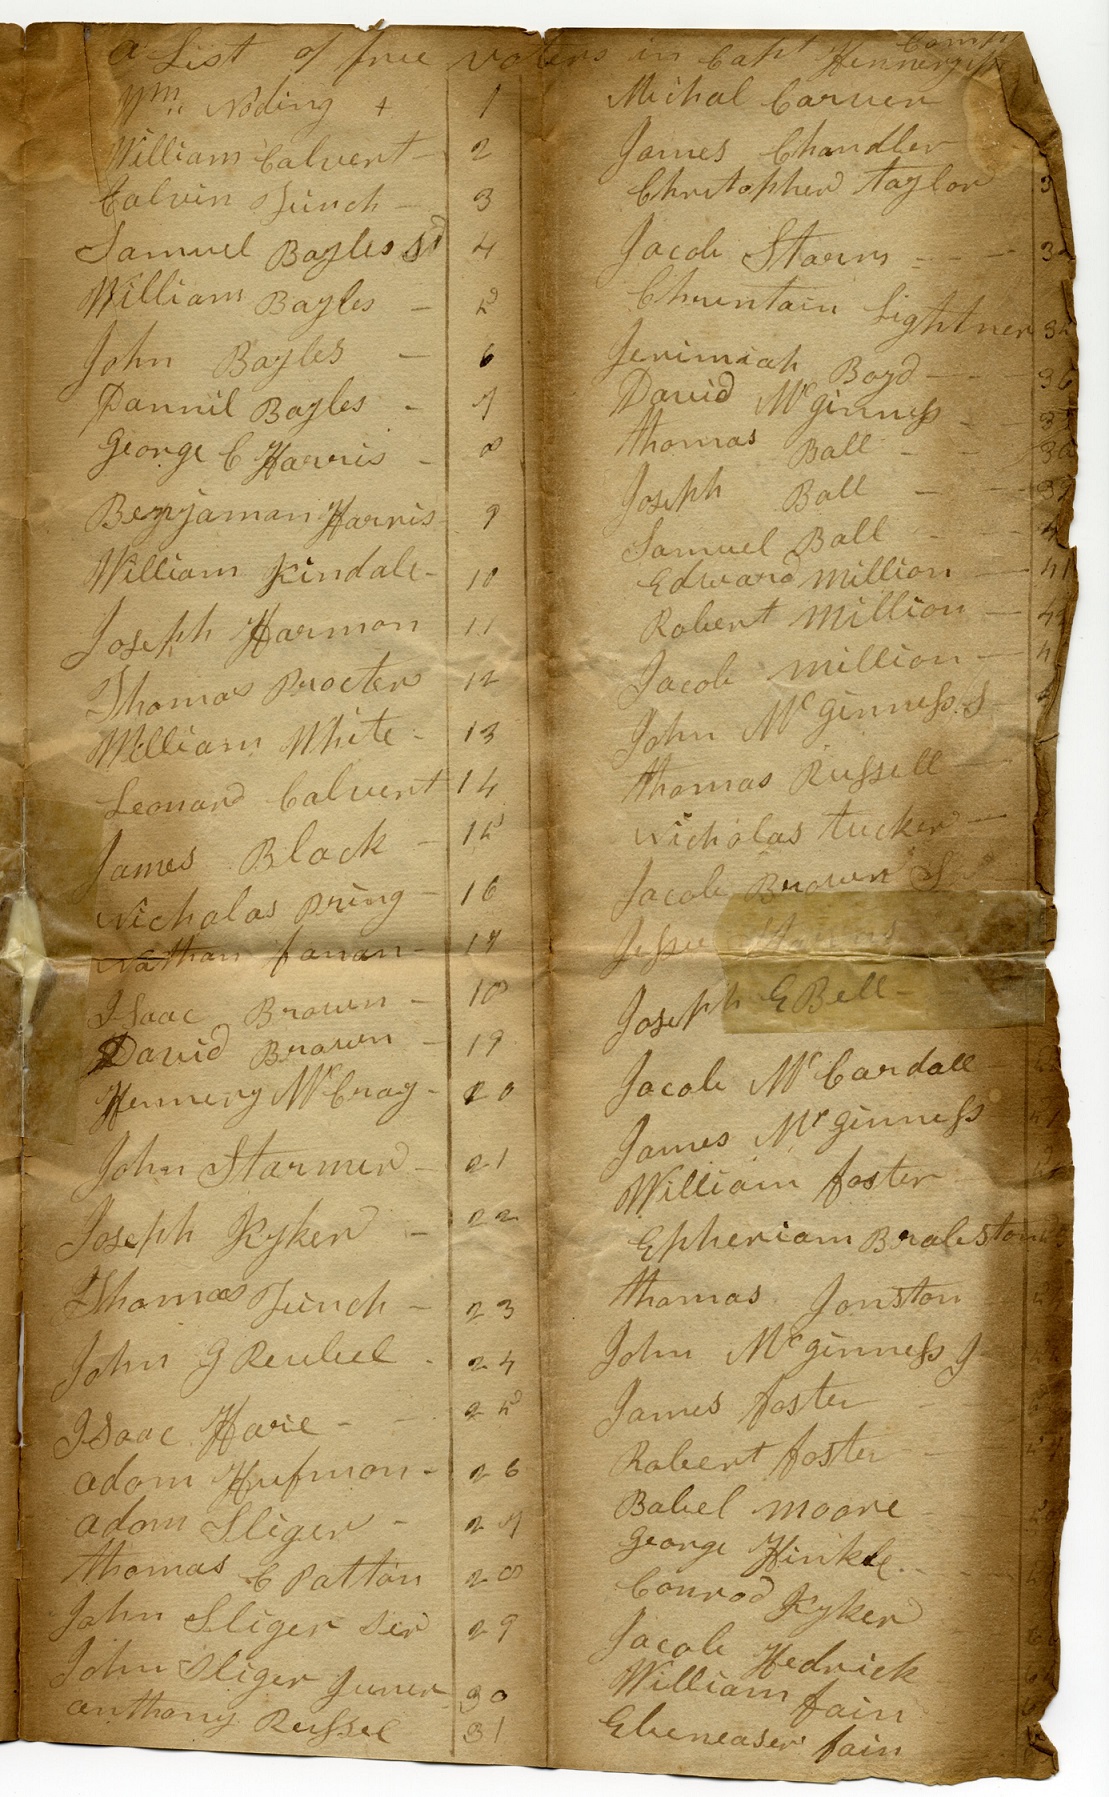 a List of free voters in Capt Hennerys Comp
Wm Noding + 1
William Calvert - 2
Calvin Finch - 3
Samuel Bayles Sr 4
William Bayles - 5
John Bayles - 6
Dannil Bayles - 7
George C Harris - 8
Benjaman Harris - 9
William Kindale - 10
Joseph Harmon 11
Thomas Procter 12
William White - 13
Leonard Calvert 14
James Black - 15
Nicholas Pring - 16
Nathan fanan - 17
Isaac Brown - 18
David Brown - 19
Hennery McCray - 20
John Starmer - 21
Joseph Kyker - 22
Thomas Finch - 23
John G Reubel - 24
Isaac Hare - - 25
adam Hufman - 26
adam Sliger - 27
thomas C Patton 28
John Sliger Ser 29
John Sliger Juner 30
anthony Russel 31
Michal Carver
James Chandler
Christopher taylor 3
Jacob Starm - - - 34
Lightner 35
Jerimiah Boyd - - - 36
David McGinness - - 37
thomas Ball - - 38
Joseph Ball - - 39
Samuel Ball - - 4
Edward Million - 41
Robert Million - 42
Jacob Million - 4
John McGinness S 4
thomas Russell -
Nicholas tucker -
Jacob Brown Sr -
Jesse
Joseph G Bell -
Jacob McCardall -
James McGinness
William foster
Epheriam Brabston 53
thomas Jonston
John McGinness J
James foster -
Robert foster -
Babel Moore -
George Hinkle - - -
Conrod Kyker
Jacob Hedrick
William fain
Ebeneaser fain